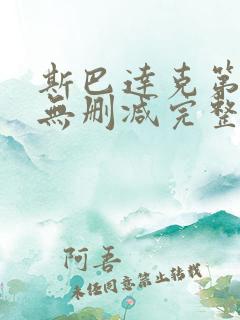 斯巴達克第
無删减完整
阿吾
未经同意禁止转载